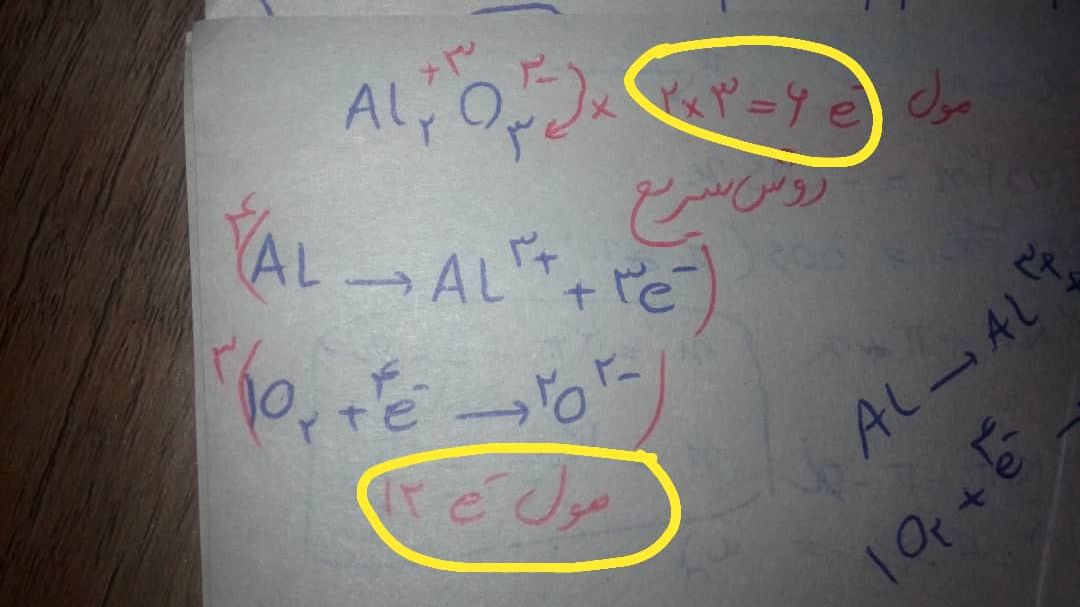 Al₂⁺³ O₃²⁻ × ۲×۳=۶ e⁻ مول
روش سریع
۴(Al → Al³⁺ + ۳e⁻)
۳(۱O₂ + ۴e⁻ → ۲O²⁻)
۱۲ e⁻ مول
Al → Al³⁺
۱O₂ + ۴e⁻